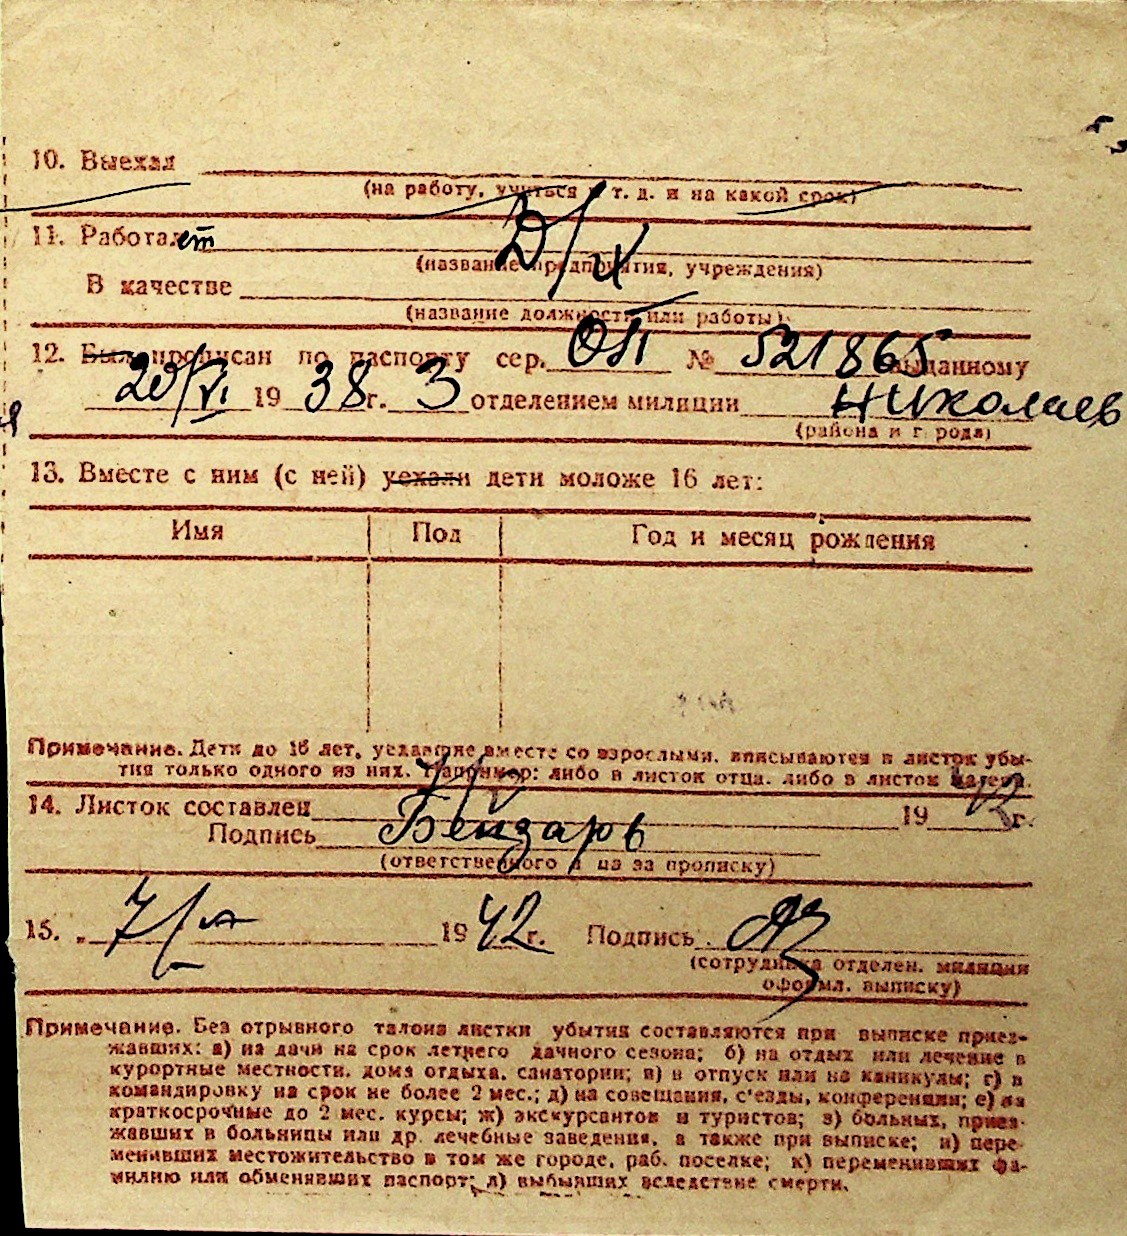 10. Выехал
(на работу, учиться и т. д. и на какой срок)
11. Работает Д/х
(название предприятия, учреждения)
В качестве
(название должности или работы)
12. Был прописан по паспорту сер. ОП № 521865 выданному
20/VI 1938г. 3 отделением милиции Николаев
(района и города)
13. Вместе с ним (с ней) уехали дети моложе 16 лет:
Имя Пол Год и месяц рождения
Примечание. Дети до 16 лет, уехавшие вместе со взрослыми, вписываются в листок убы-
тия только одного из них. Например: либо в листок отца, либо в листок матери.
14. Листок составлен 1942г.
Подпись
(ответственного лица за прописку)
15. „ 7/ 1942г. Подпись
(сотрудника отделен. милиции
оформл. выписку)
Примечание. Без отрывного талона листки убытия составляются при выписке приез-
жавших: а) на дачи на срок летнего дачного сезона; б) на отдых или лечение в
курортные местности, дома отдыха, санатории; в) в отпуск или на каникулы; г) в
командировку на срок не более 2 мес.; д) на совещания, с'езды, конференции; е) на
краткосрочные до 2 мес. курсы; ж) экскурсантов и туристов; з) больных, приез-
жавших в больницы или др. лечебные заведения, а также при выписке; и) пере-
менивших местожительство в том же городе, раб. поселке; к) переменивших фа-
милию или обменявших паспорт; л) выбывших вследствие смерти.